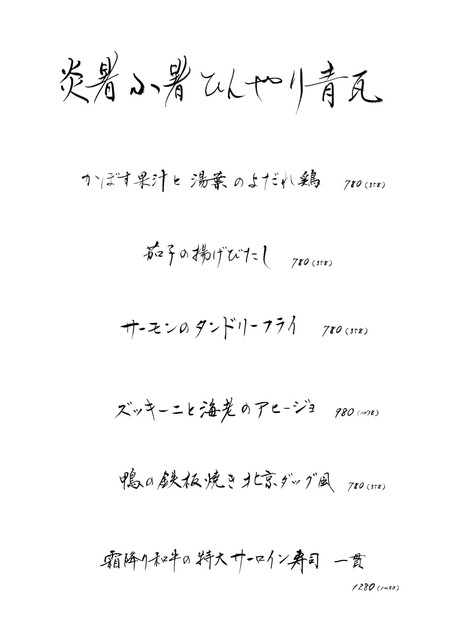 炎暑小暑ひんやり青瓦
かぼす果汁と湯葉のよだれ鶏 780(858)
茄子の揚げびたし 780(858)
サーモンのタンドリーフライ 780(858)
ズッキーニと海老のアヒージョ 980(1078)
鴨の鉄板焼き北京ダック風 780(858)
霜降り和牛の特大サーロイン寿司 一貫
1280(1408)